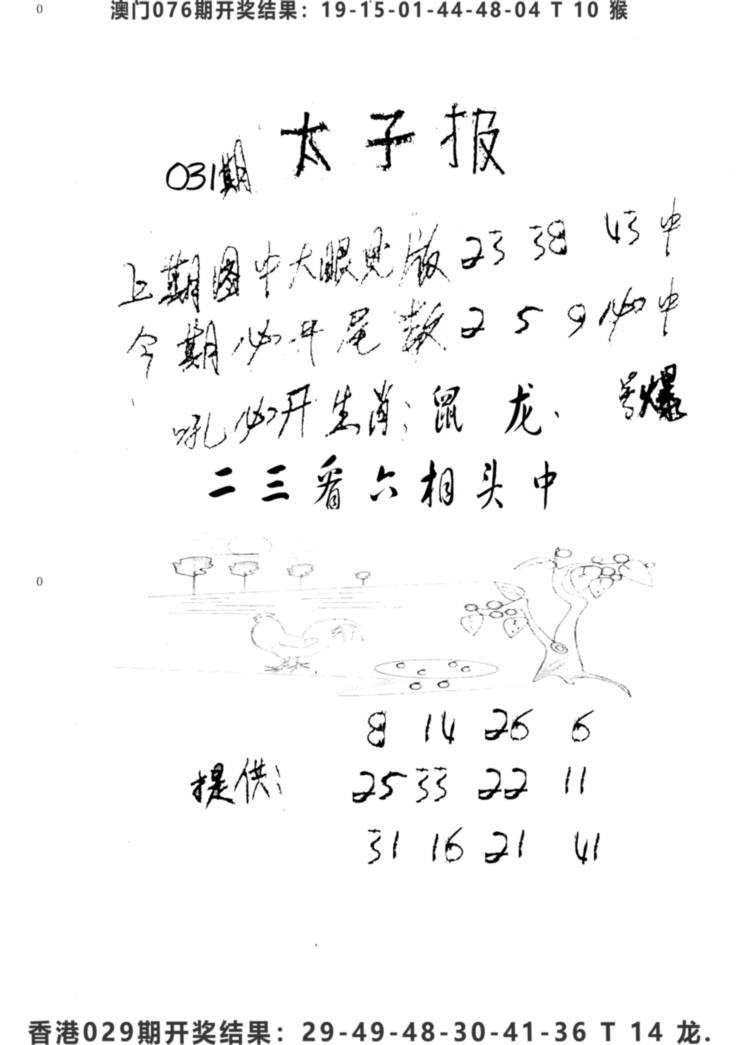 0
澳门076期开奖结果：19-15-01-44-48-04 T 10 猴
太子报
031期
上期图中大眼见版 23 38 43 中
今期必开尾数 2 5 9 必中
吼必开生肖：鼠 龙. 爆
二三看六相头中
0
8 14 26 6
提供： 25 33 22 11
31 16 21 41
香港029期开奖结果：29-49-48-30-41-36 T 14 龙.